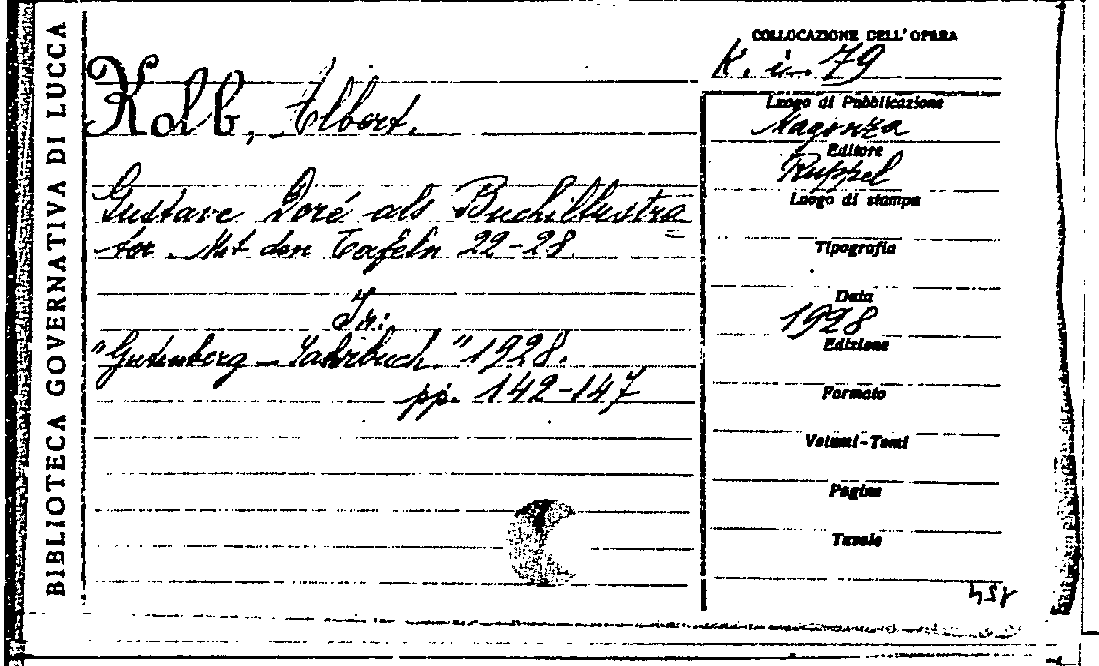 BIBLIOTECA GOVERNATIVA DI LUCCA
Kolb, Albert.
Gustave Doré als Buchillustra
tor. Mit den Tafeln 22-28.
In:
"Gutenberg - Jahrbuch" 1928.
pp. 142-147
COLLOCAZIONE DELL'OPERA
K. i. 79
Luogo di Pubblicazione
Magonza
Editore
Ruppel
Luogo di stampa
Tipografia
Data
1928
Edizione
Formato
Volumi-Tomi
Pagine
Tavole